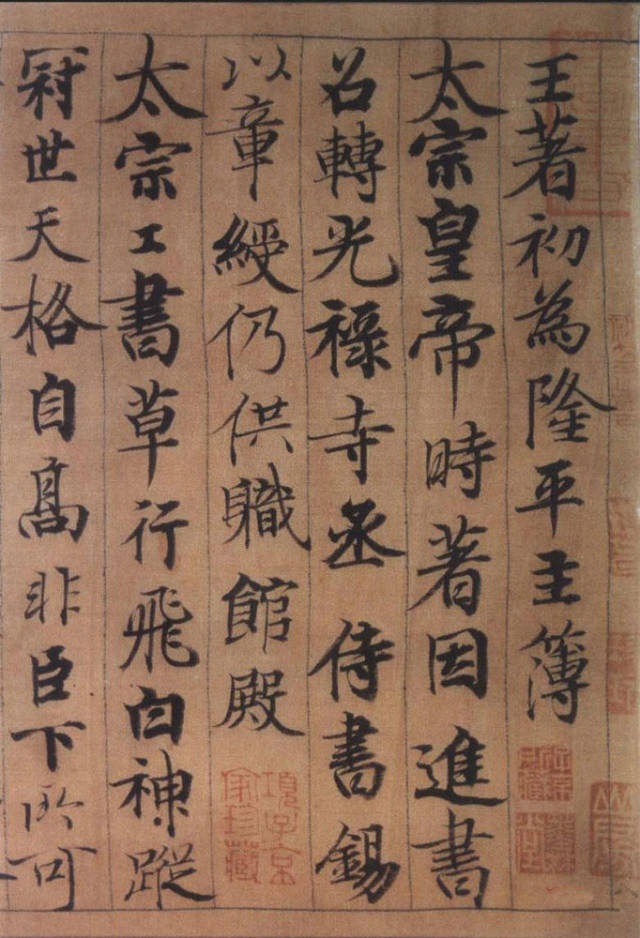 王著初為隆平主簿
太宗皇帝時著因進書
召轉光祿寺丞侍書錫
以章綬仍供職館殿
太宗工書草行飛白神蹤
冠世天格自高非臣下所可
項子京家珍藏